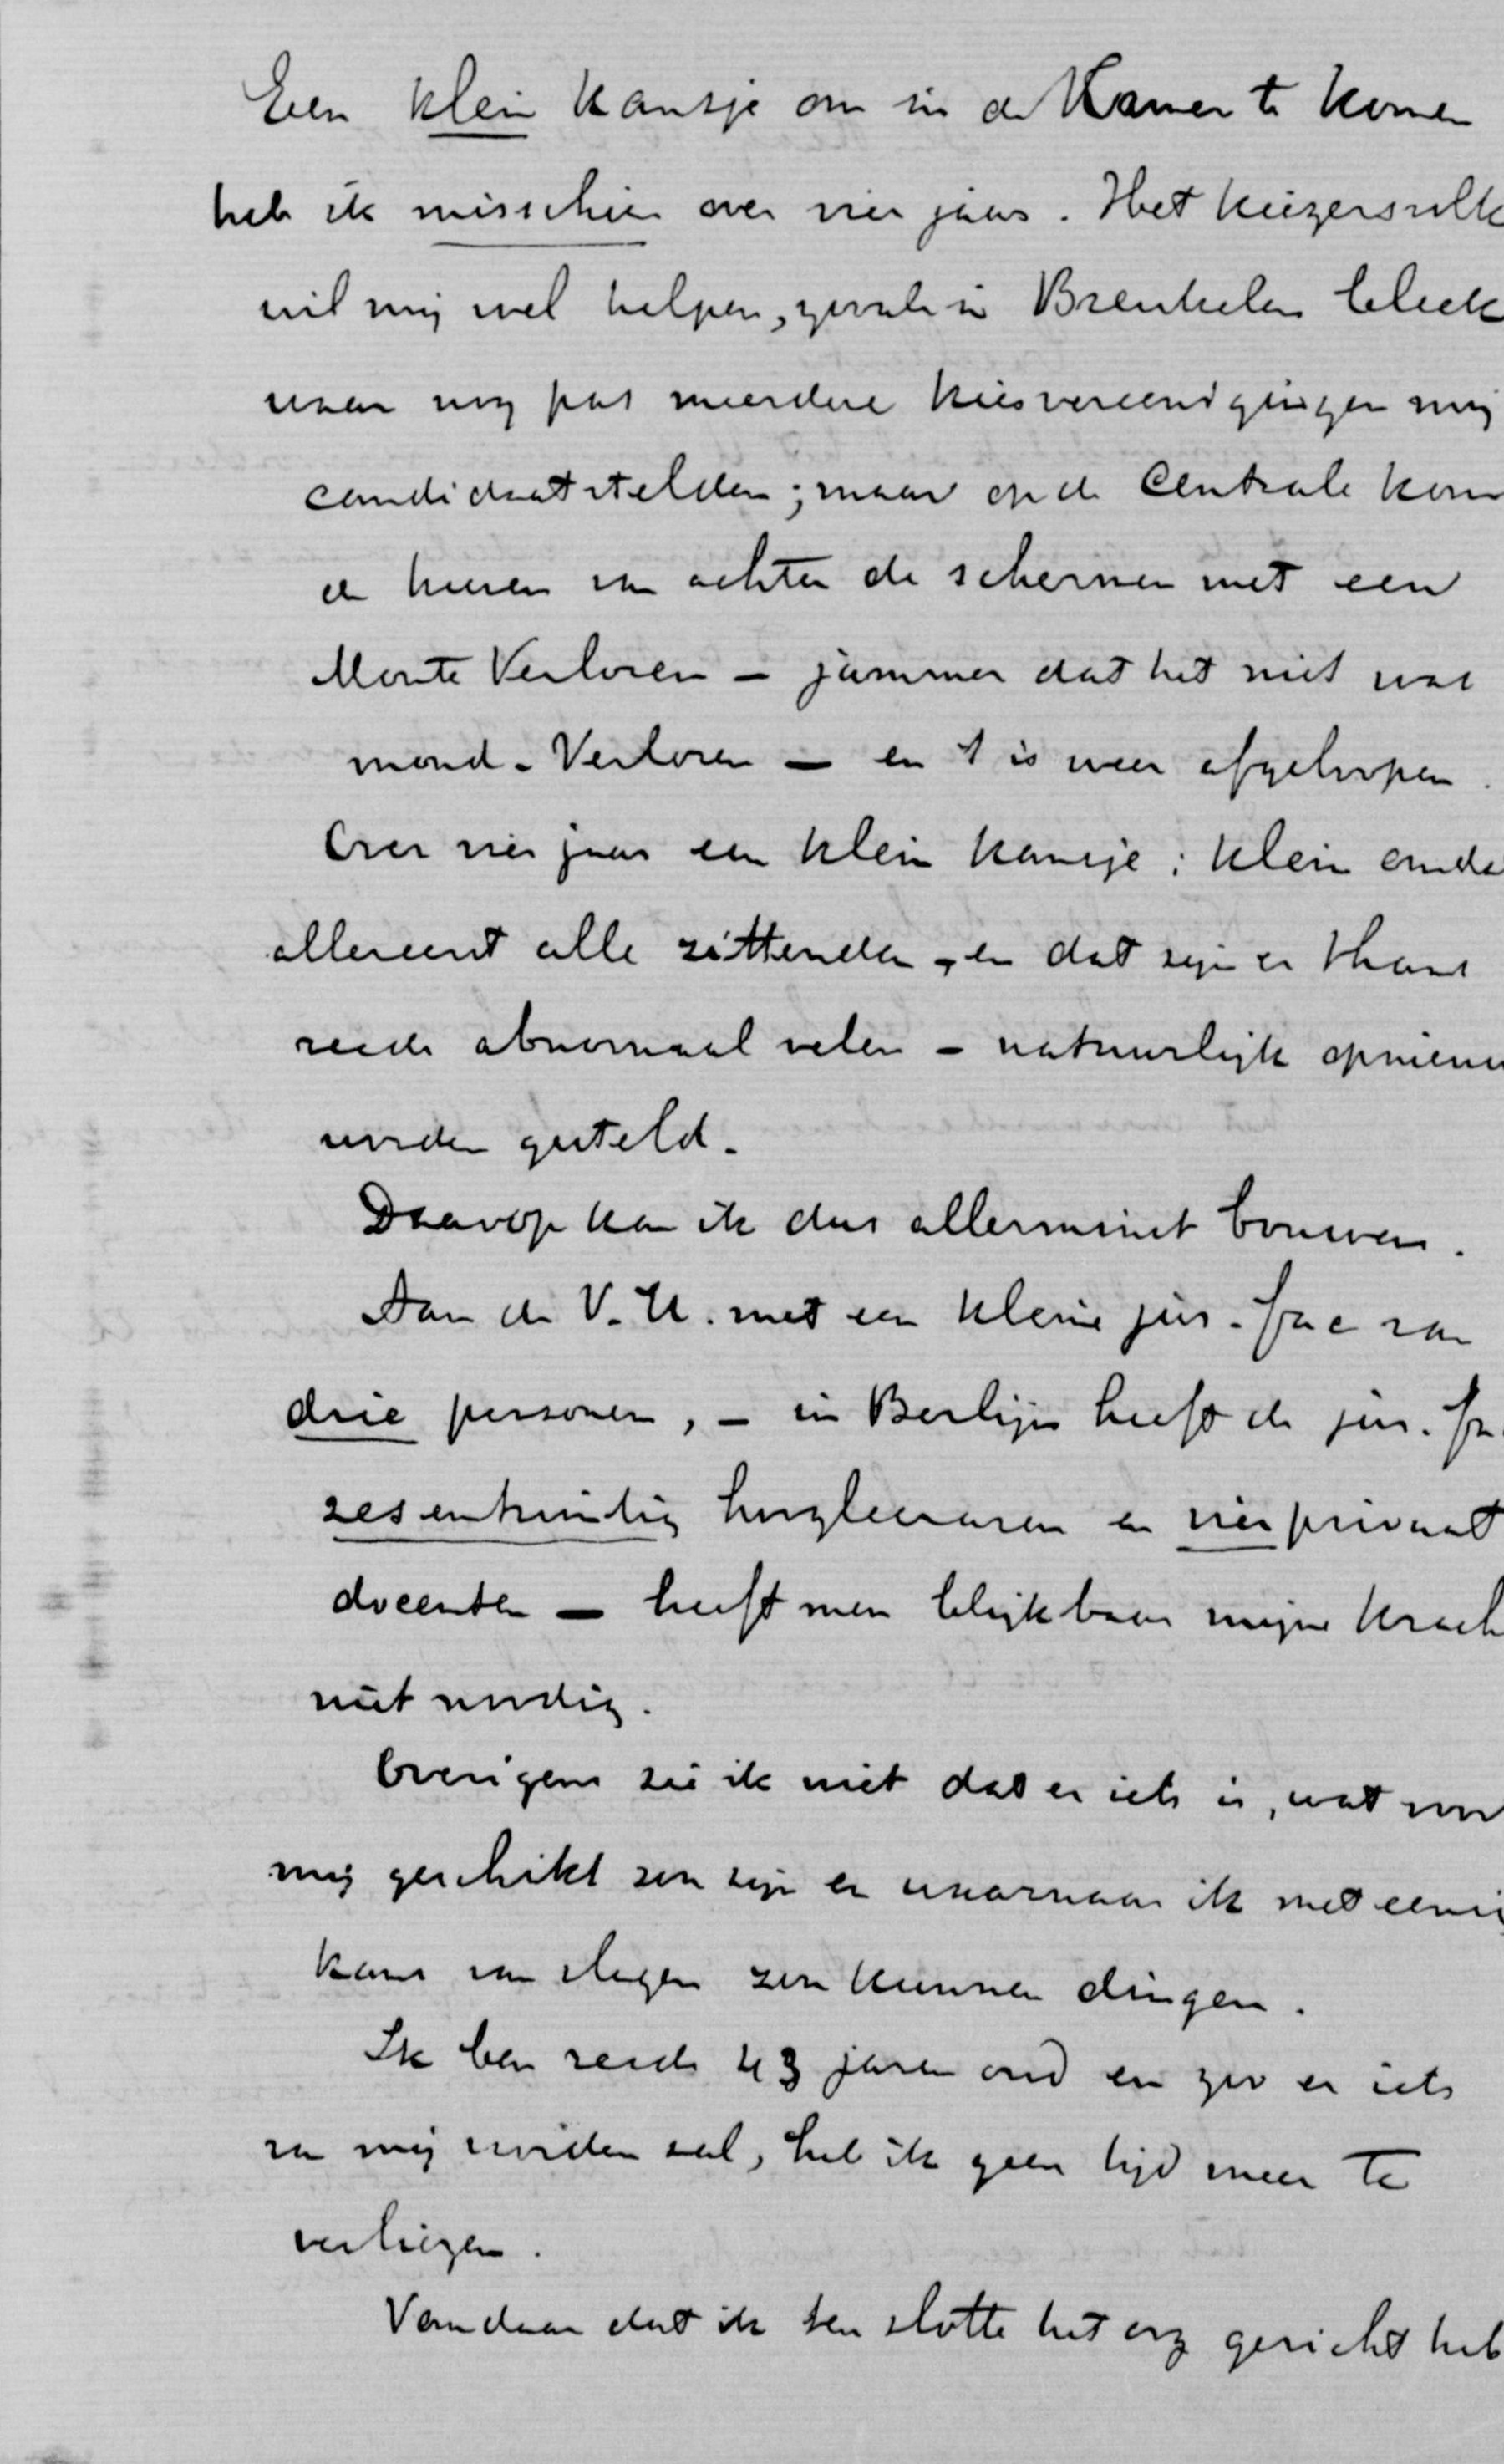 Een klein kansje om in de Kamer te komen
heb ik misschien over vier jaar. Het kiezersvolk
wil mij wel helpen, zooals in Breukelen bleek
waar nog pas meerdere kiesvereenigingen mij
candidaat stelden; maar op de Centrale kom
de heeren van achter de schermen met een
Monte Verloren – jammer dat het niet was
mond-Verloren – en 't is weer afgeloopen.
Over vier jaar een klein kansje: klein omda
allereerst alle zittenden – en dat zijn er thans
reeds abnormaal velen – natuurlijk opnieuw
worden gesteld.
Daarop kan ik dus allerminst bouwen.
Aan de V.U. met een kleine jur. fac van
drie personen, – in Berlijn heeft de jur. fa
zes en twintig hoogleeraren en vier privaat
docenten – heeft men blijkbaar mijne krach
niet noodig.
Overigens zie ik niet dat er iets is, wat voor
mij geschikt zou zijn en waarnaar ik met eeni
kans van slagen zou kunnen dingen.
Ik ben reeds 43 jaren oud en zoo er iets
van mij worden zal, heb ik geen tijd meer te
verliezen.
Vandaar dat ik ten slotte het oog gericht heb